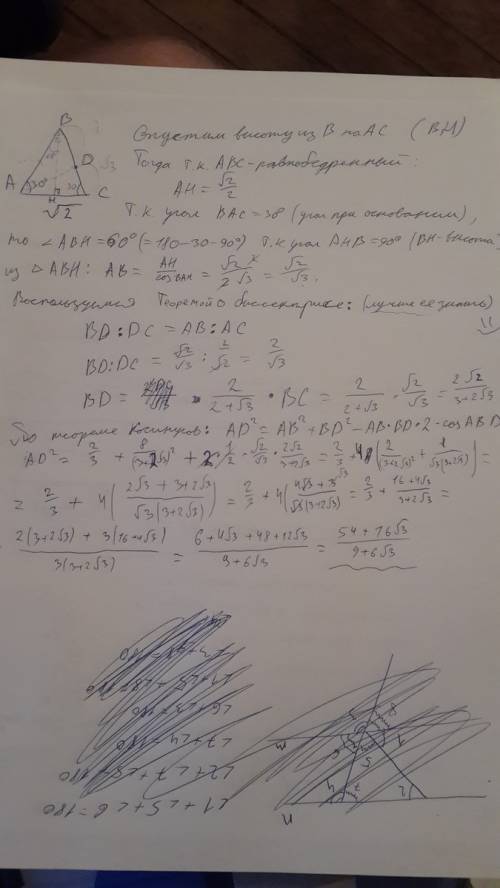 B
D
√3
A 30° 30° C
H
√2
Опустим высоту из B на AC (BH)
Тогда т.к. ABC - равнобедренный:
AH = √2/2
Т.к угол BAC = 30° (угол при основании),
то ∠ABH = 60° (= 180 - 30 - 90°) Т.к угол AHB = 90° (BH - высота)
из △ABH: AB = AH/cos BAH = √2·2/2√3 = √2/√3.
Воспользуемся Теоремой о биссектрисе: (лучше её запомнить)
BD : DC = AB : AC
BD:DC = √2/√3 : 2/√2 = 2/√3
BD = 2/(2+√3) · BC = 2/(2+√3) · √2/√3 = 2√2/(3+2√3)
По теореме косинусов: AD² = AB² + BD² - AB·BD·2·cos ABD
AD² = 2/3 + 8/(3+2√3)² + 2·1/2·√2/√3·2√2/(3+2√3) = 2/3 + 4(2/(3+2√3)² + 1/(√3(3+2√3))) =
= 2/3 + 4((2√3+3+2√3)/(√3(3+2√3))) = 2/3 + 4((4√3+3)/(√3(3+2√3))) = 2/3 + (16+4√3)/(3+2√3) =
(2(3+2√3) + 3(16+4√3))/(3(3+2√3)) = (6+4√3+48+12√3)/(9+6√3) = (54+16√3)/(9+6√3)
∠1 + ∠5 + ∠6 = 180
∠2 + ∠7 + ∠8 = 180
m
n